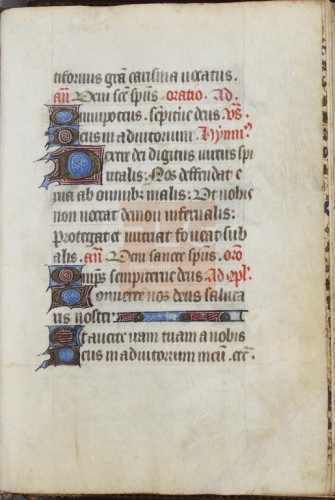 tiformis gr̄a carisma uocatus.
an̄ Veni sc̄e sp̄us. oratio. Ad
Omnipotens. sempit̄ne deus. Vs̄.
Deus in adiutorium. Hymn᷒
Dextre dei digitus uirtus spi
ritalis. Nos defendat e
ruat ab omnib᷒ malis: Ut nobis
non noceat demon infernalis:
Protegat et nutriat foueat sub
alis. an̄. Veni sancte sp̄us. or̄o
Omp̄s sempiterne deus. Ad cp̄l.
Conuerte nos deus saluta
ris noster.
Et auerte iram tuam a nobis
Deus in adiutorium meū. etc̄.